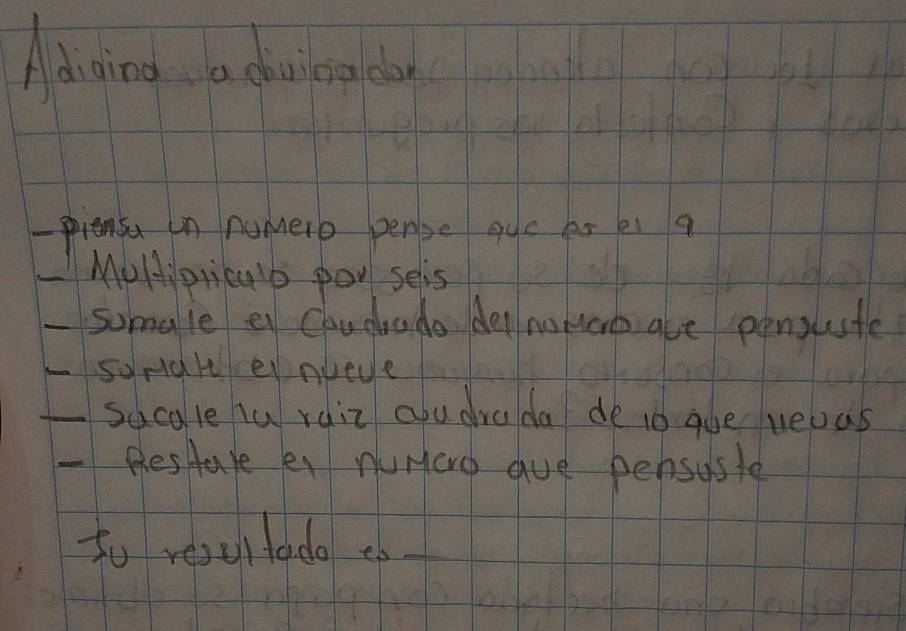 Adigina adivinador
- piensa un numero pense que es el 9
- Multiplicalo por seis
- Sumale el Cuadrado del numero que pensaste
- sumale el nueve
- Sacale la raiz cuadrada de lo que llevas
- Restale el numero que pensaste
tu resultado es —